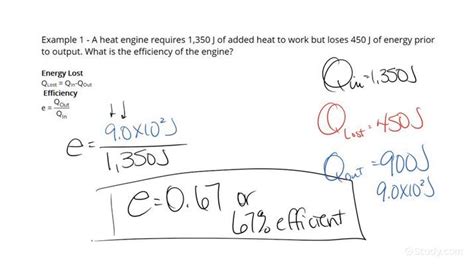 Example 1 - A heat engine requires 1,350 J of added heat to work but loses 450 J of energy prior
to output. What is the efficiency of the engine?
Energy Lost
QLost = Qin-Qout
Efficiency
e = Qout/Qin
Qin=1,350J
QLost =450J
Qout =900J
9.0X10²J
e= 9.0X10²J
1,350J
e=0.67 or
67% efficient
Study.com